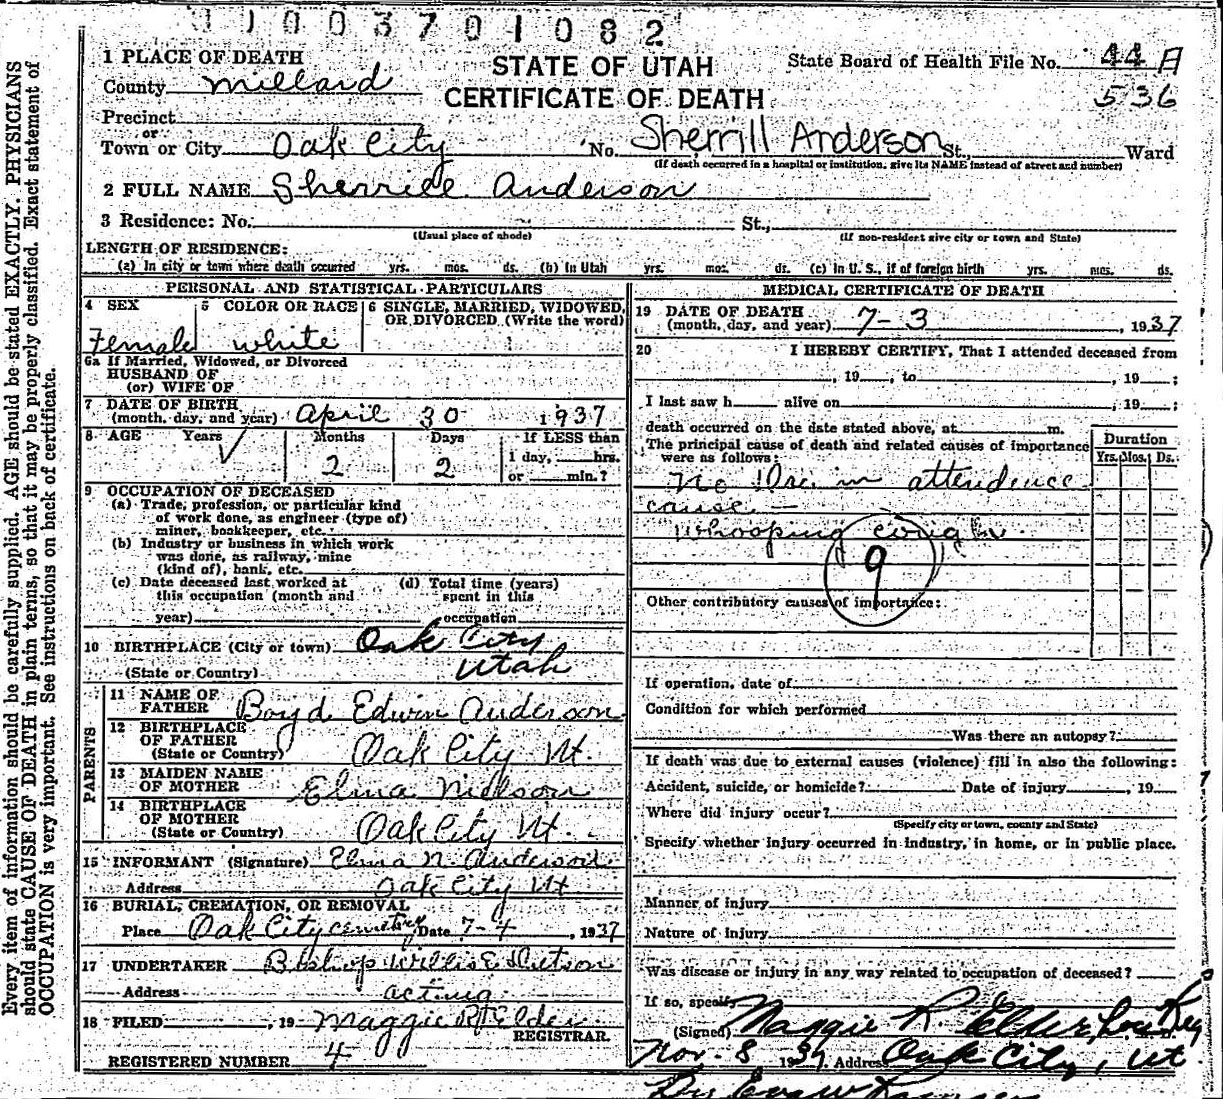 1003701082
1 PLACE OF DEATH
STATE OF UTAH
State Board of Health File No. 44 A
County Millard
CERTIFICATE OF DEATH
536
Precinct
or
Town or City Oak City No. Sherrill Anderson St., Ward
(If death occurred in a hospital or institution, give its NAME instead of street and number)
2 FULL NAME Sherrill Anderson
3 Residence: No. St.,
(Usual place of abode) (If non-resident give city or town and State)
LENGTH OF RESIDENCE:
(a) In city or town where death occurred yrs. mos. ds. (b) In Utah yrs. mos. ds. (c) In U. S., if of foreign birth yrs. mos. ds.
PERSONAL AND STATISTICAL PARTICULARS
4 SEX 5 COLOR OR RACE 6 SINGLE, MARRIED, WIDOWED, OR DIVORCED (Write the word)
Female white
6a If Married, Widowed, or Divorced
HUSBAND OF
(or) WIFE OF
7 DATE OF BIRTH
(month, day, and year) April 30 1937
8 AGE Years Months Days If LESS than
1 day, hrs.
2 2 or min.?
9 OCCUPATION OF DECEASED
(a) Trade, profession, or particular kind
of work done, as engineer (type of)
miner, bookkeeper, etc.
(b) Industry or business in which work
was done, as railway, mine
(kind of), bank, etc.
(c) Date deceased last worked at (d) Total time (years)
this occupation (month and spent in this
year) occupation
10 BIRTHPLACE (City or town) Oak City
(State or Country) Utah
PARENTS
11 NAME OF
FATHER Boyd Edwin Anderson
12 BIRTHPLACE
OF FATHER
(State or Country) Oak City Ut.
13 MAIDEN NAME
OF MOTHER Elma Nielson
14 BIRTHPLACE
OF MOTHER
(State or Country) Oak City Ut.
15 INFORMANT (Signature) Elma N. Anderson
Address Oak City Ut
16 BURIAL, CREMATION, OR REMOVAL
Place Oak City cemetery Date 7-4, 1937
17 UNDERTAKER Bishop Willis E Dutson
Address acting
18 FILED , 19 Maggie R Elder
REGISTRAR.
REGISTERED NUMBER 4
MEDICAL CERTIFICATE OF DEATH
19 DATE OF DEATH
(month, day, and year) 7-3, 1937
20 I HEREBY CERTIFY, That I attended deceased from
, 19 , to , 19 ;
I last saw h alive on , 19 ;
death occurred on the date stated above, at m.
The principal cause of death and related causes of importance
were as follows:
Duration
Yrs. Mos. Ds.
No Doc in attendence
cause —
Whooping cough
9
Other contributory causes of importance:
If operation, date of
Condition for which performed
Was there an autopsy?
If death was due to external causes (violence) fill in also the following:
Accident, suicide, or homicide? Date of injury , 19
Where did injury occur?
(Specify city or town, county and State)
Specify whether injury occurred in industry, in home, or in public place.
Manner of injury
Nature of injury
Was disease or injury in any way related to occupation of deceased?
If so, specify
(Signed) Maggie R. Elder Loc Reg
Nov. 8 1937. Address Oak City, Ut
Every item of information should be carefully supplied. AGE should be stated EXACTLY. PHYSICIANS
should state CAUSE OF DEATH in plain terms, so that it may be properly classified. Exact statement of
OCCUPATION is very important. See instructions on back of certificate.